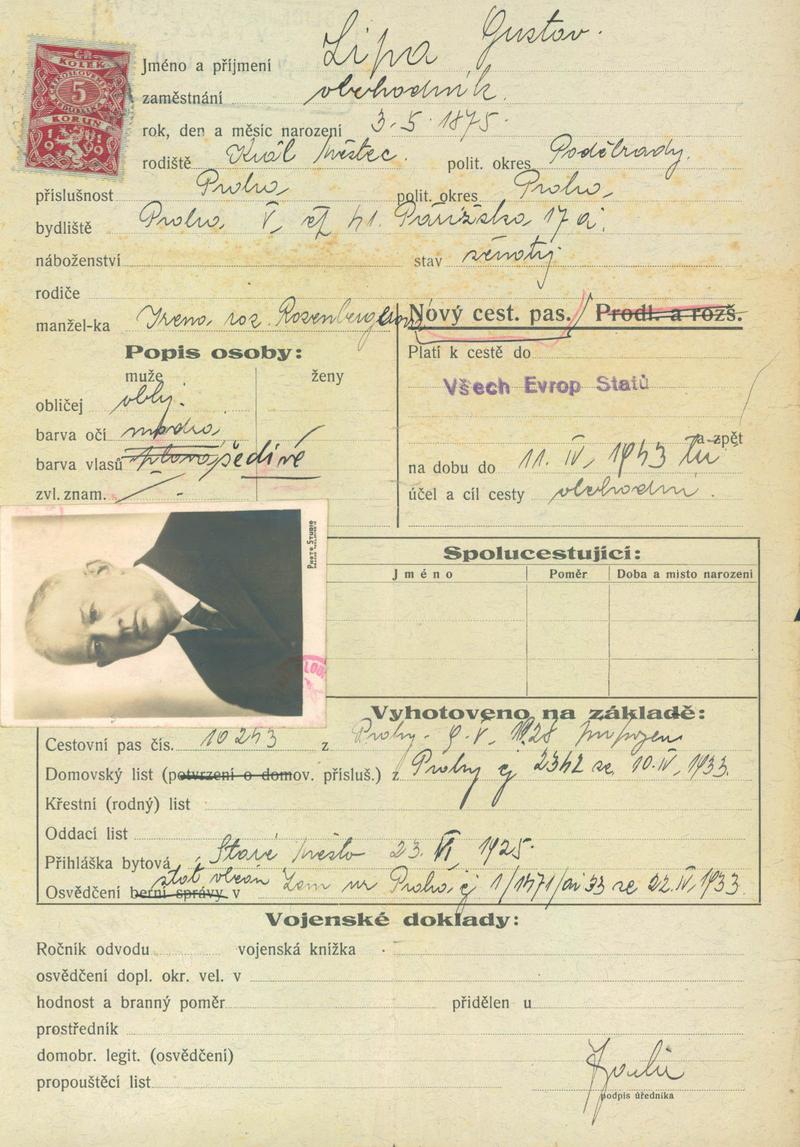 KOLEK
5
KORUN
1919
Jméno a příjmení Lípa Gustav.
zaměstnání obchodník.
rok, den a měsíc narození 3. 5. 1875.
rodiště Král Městec. polit. okres Poděbrady.
příslušnost Praha polit. okres Praha
bydliště Praha V, čp 41. Pařížská 17 a.
náboženství stav ženatý
rodiče
manžel-ka Irena roz. Rosenbergerová
Nový cest. pas. Prodl. a rozš.
Popis osoby:
muže ženy
obličej oblý.
barva očí modrá
barva vlasů plavá šedivé
zvl. znam.
Platí k cestě do
Všech Evrop Států
a zpět
na dobu do 11. IV. 1943
účel a cíl cesty obchodní.
PHOTO STUDIO
Spolucestující:
Jméno Poměr Doba a místo narození
Vyhotoveno na základě:
Cestovní pas čís. 10243 z Prahy 9. V. 1928
Domovský list (potvrzení o domov. přísluš.) z Prahy čj 2342 ze 10. IV. 1933.
Křestní (rodný) list
Oddací list
Přihláška bytová Staré Město 23. VI. 1925.
stát občan
Osvědčení berní správy v Zem úř Praha čj 1/1471/ai 33 ze 22. IV. 1933.
Vojenské doklady:
Ročník odvodu vojenská knížka
osvědčení dopl. okr. vel. v
hodnost a branný poměr přidělen u
prostředník
domobr. legit. (osvědčení)
propouštěcí list
podpis úředníka